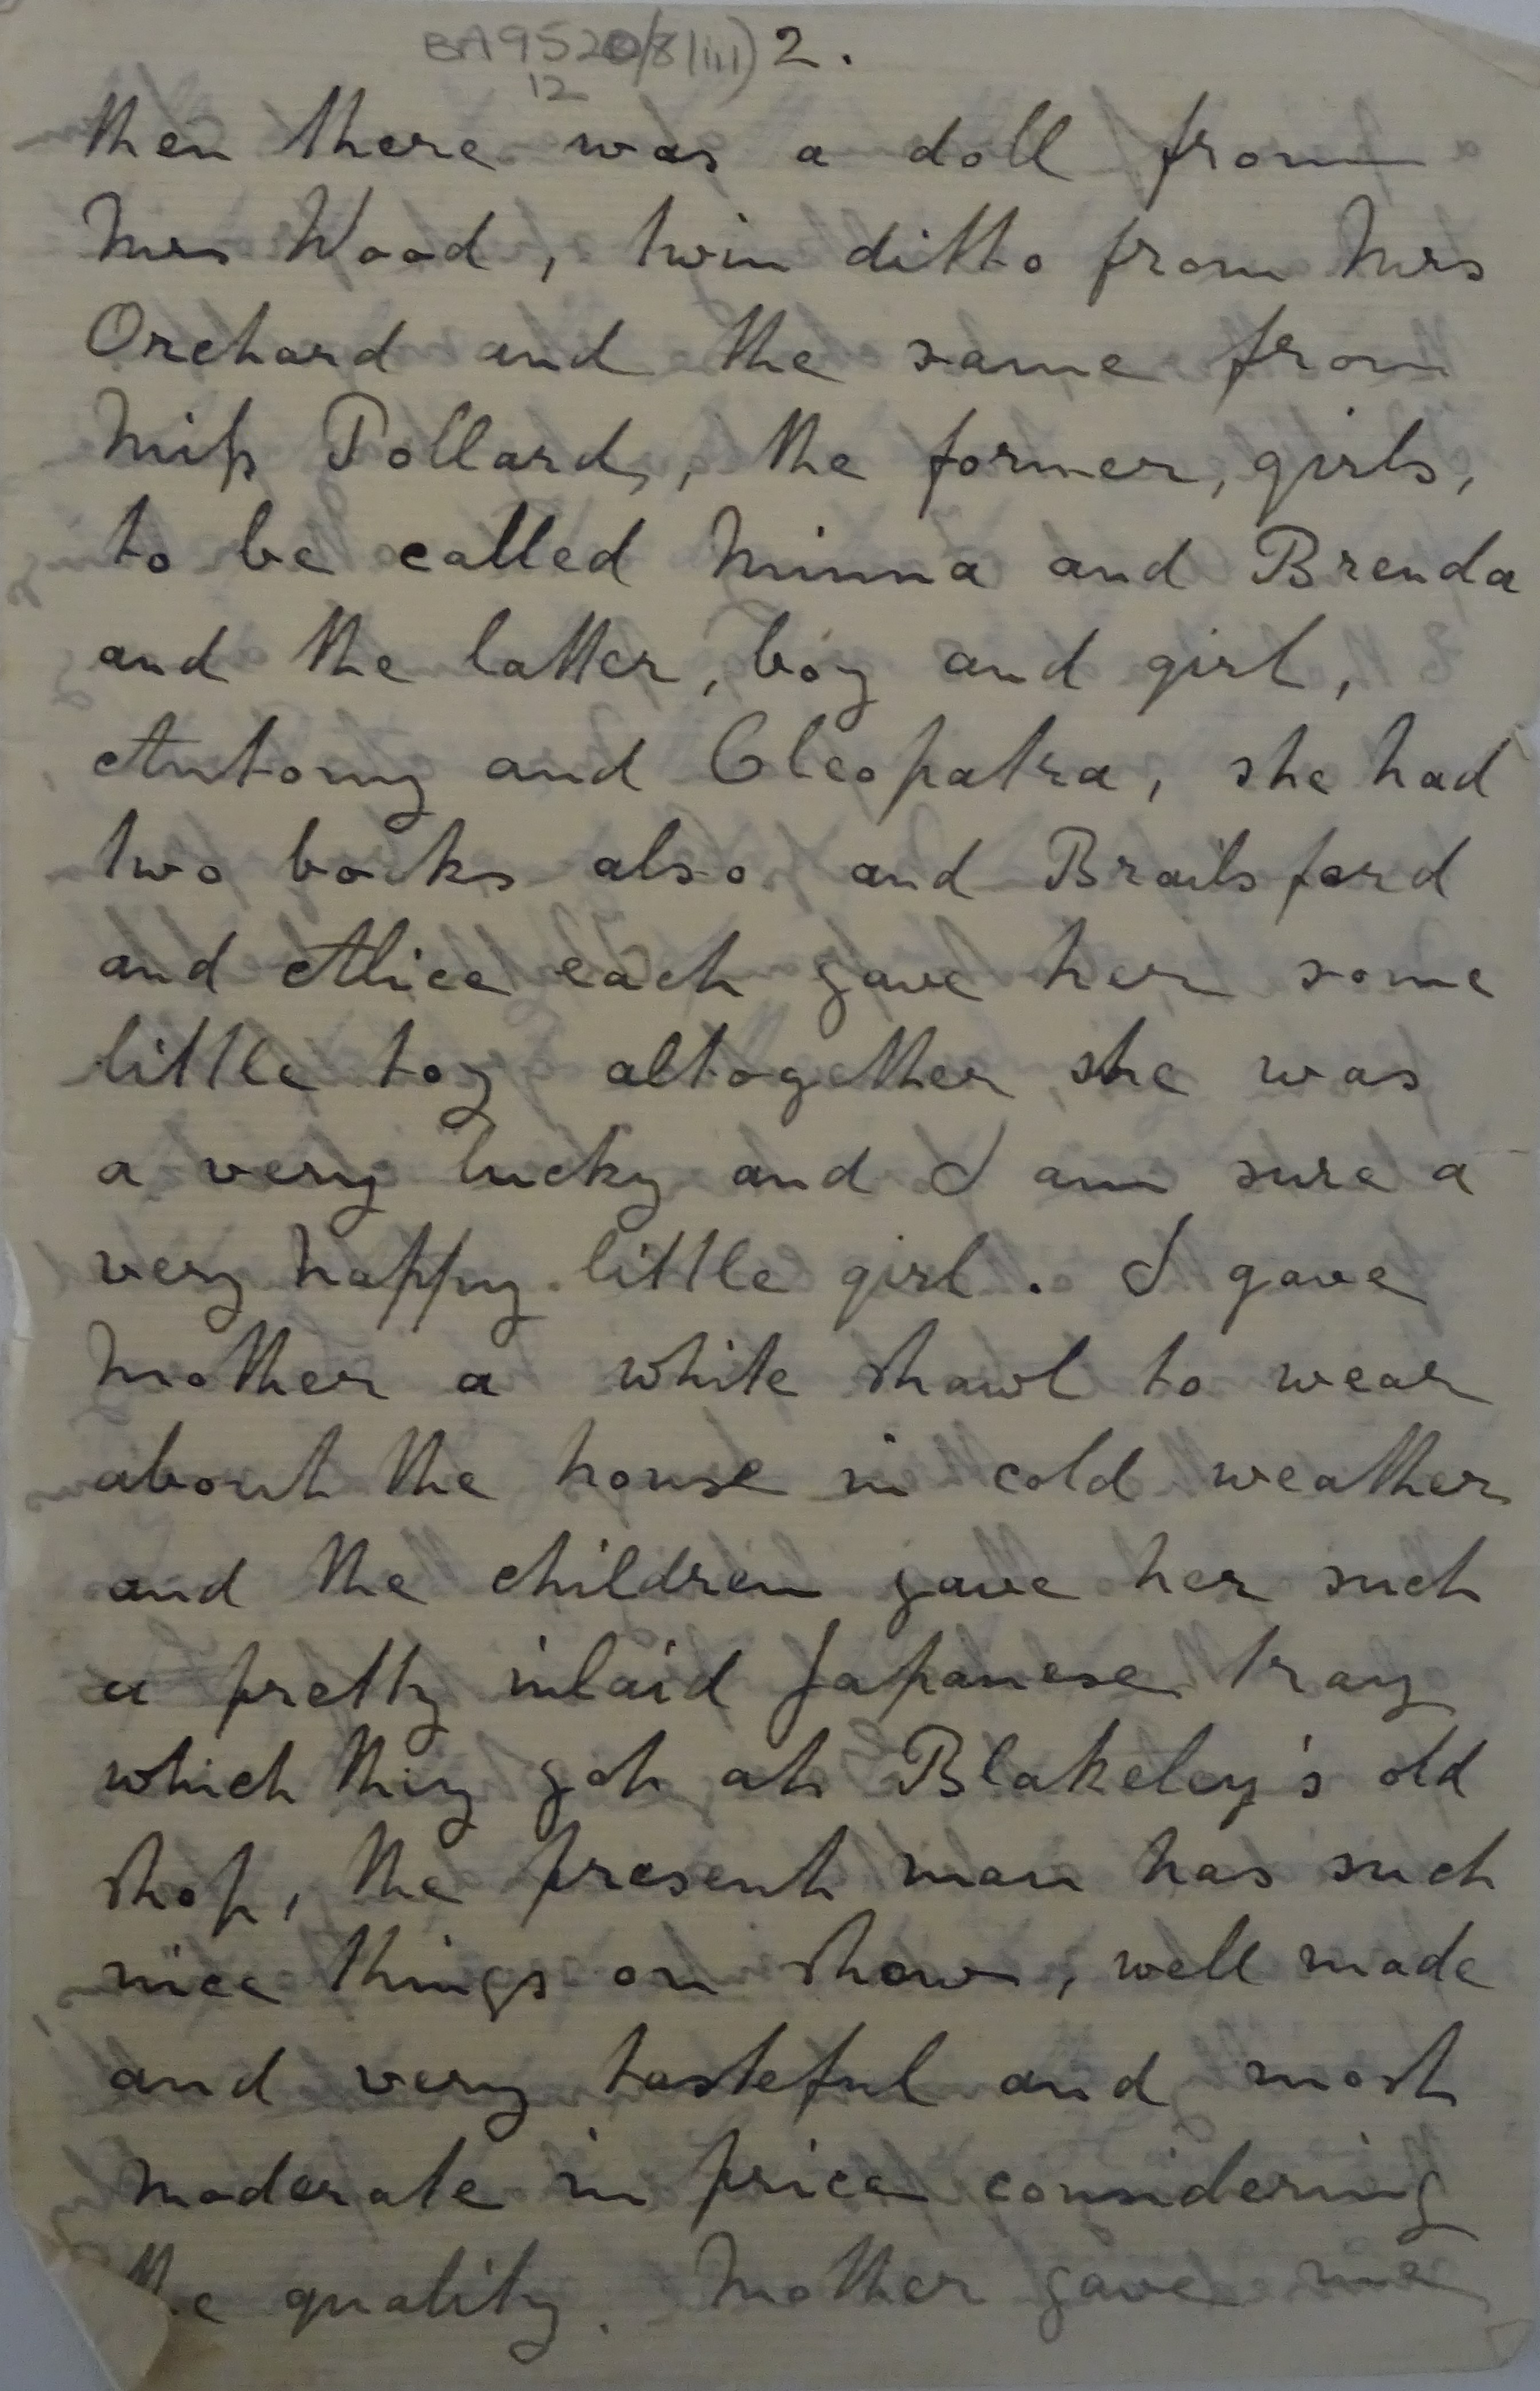 BA9520/8(iii) 2.
12
then there was a doll from
Mrs Wood, twin ditto from Mrs
Orchard and the same from
Miss Pollard, the former, girls,
to be called Minna and Brenda
and the latter, boy and girl,
Antony and Cleopatra, she had
two books also and Brailsford
and Alice each gave her some
little toy altogether she was
a very lucky and I am sure a
very happy little girl. I gave
Mother a white shawl to wear
about the house in cold weather
and the children gave her such
a pretty inlaid Japanese tray
which they got at Blakeley's old
shop, the present man has such
nice things on show, well made
and very tasteful and most
moderate in price considering
the quality. Mother gave me